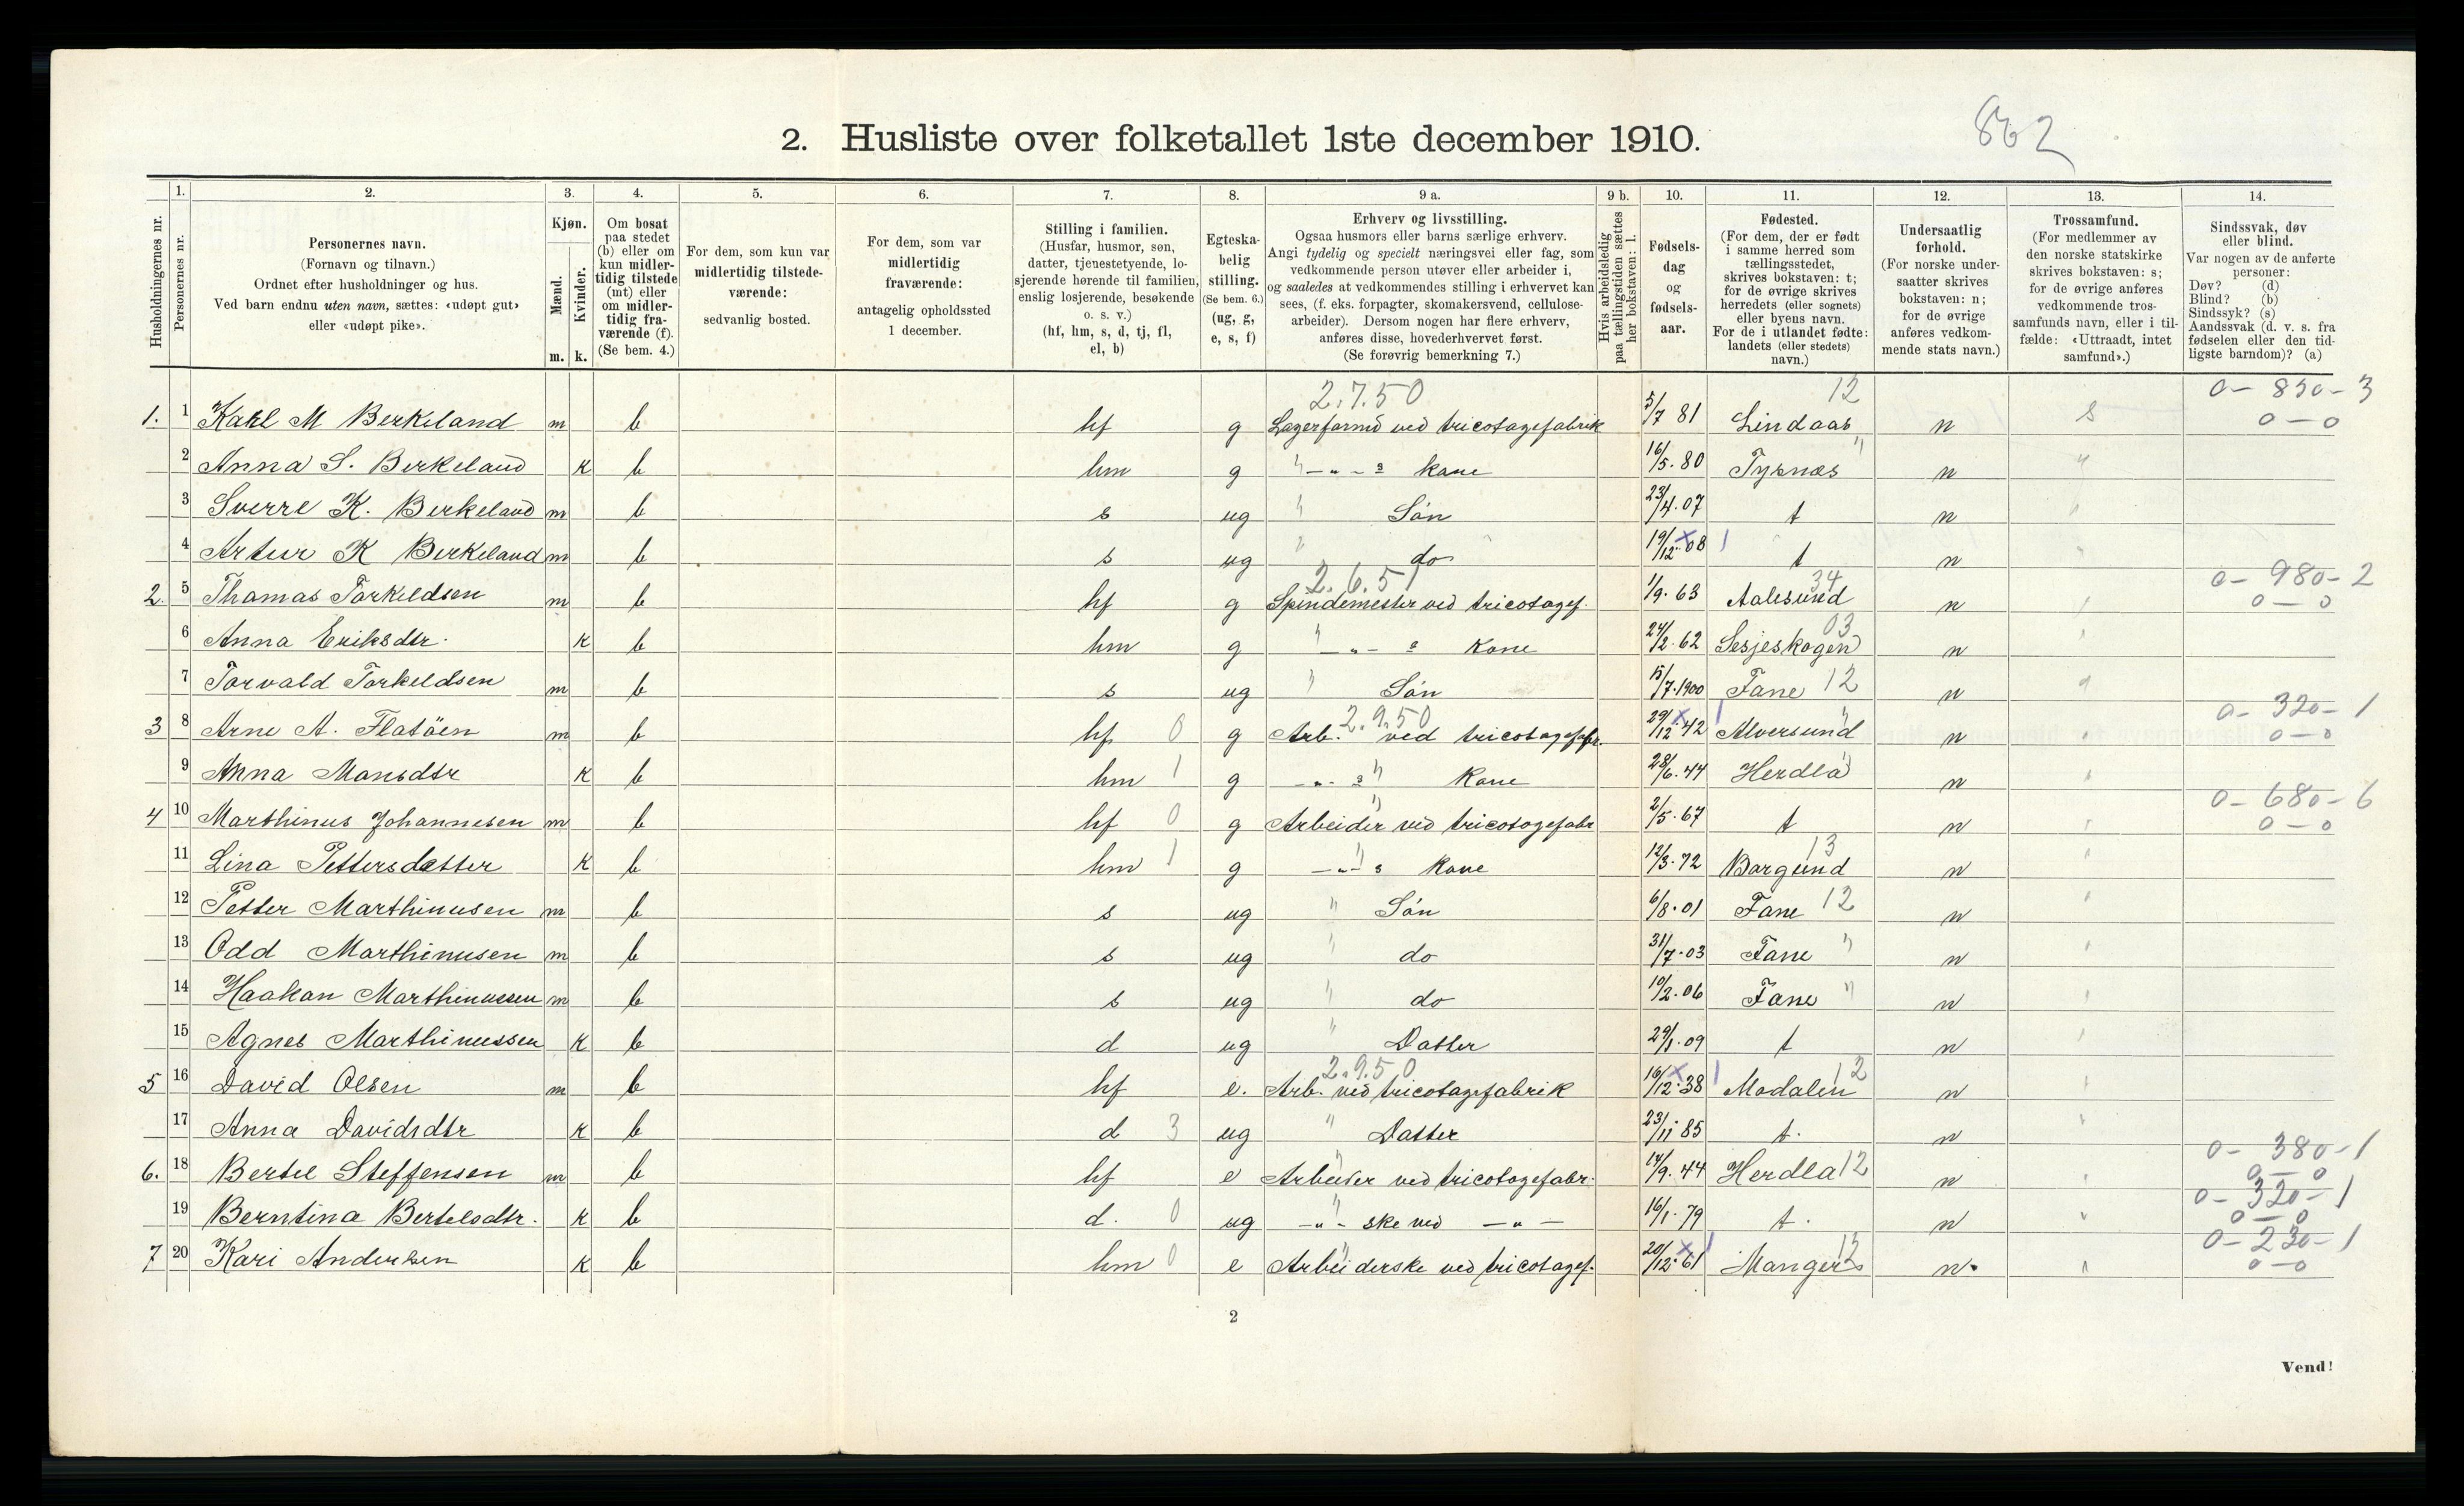 862
2. Husliste over folketallet 1ste december 1910.
Husholdningernes nr.
1. Personernes nr.
2. Personernes navn. (Fornavn og tilnavn.) Ordnet efter husholdninger og hus. Ved barn endnu uten navn, sættes: «udøpt gut» eller «udøpt pike».
3. Kjøn. Mænd. m. Kvinder. k.
4. Om bosat paa stedet (b) eller om kun midlertidig tilstede (mt) eller om midlertidig fraværende (f). (Se bem. 4.)
5. For dem, som kun var midlertidig tilstedeværende: sedvanlig bosted.
6. For dem, som var midlertidig fraværende: antagelig opholdssted 1 december.
7. Stilling i familien. (Husfar, husmor, søn, datter, tjenestetyende, losjerende hørende til familien, enslig losjerende, besøkende o. s. v.) (hf, hm, s, d, tj, fl, el, b)
8. Egteskabelig stilling. (Se bem. 6.) (ug, g, e, s, f)
9 a. Erhverv og livsstilling. Ogsaa husmors eller barns særlige erhverv. Angi tydelig og specielt næringsvei eller fag, som vedkommende person utøver eller arbeider i, og saaledes at vedkommendes stilling i erhvervet kan sees, (f. eks. forpagter, skomakersvend, cellulosearbeider). Dersom nogen har flere erhverv, anføres disse, hovederhvervet først. (Se forøvrig bemerkning 7.)
9 b. Hvis arbeidsledig paa tællingstiden sættes her bokstaven: l.
10. Fødselsdag og fødselsaar.
11. Fødested. (For dem, der er født i samme herred som tællingsstedet, skrives bokstaven: t; for de øvrige skrives herredets (eller sognets) eller byens navn. For de i utlandet fødte: landets (eller stedets) navn.)
12. Undersaatlig forhold. (For norske undersaatter skrives bokstaven: n; for de øvrige anføres vedkommende stats navn.)
13. Trossamfund. (For medlemmer av den norske statskirke skrives bokstaven: s; for de øvrige anføres vedkommende trossamfunds navn, eller i tilfælde: «Uttraadt, intet samfund».)
14. Sindssvak, døv eller blind. Var nogen av de anførte personer: Døv? (d) Blind? (b) Sindssyk? (s) Aandssvak (d. v. s. fra fødselen eller den tidligste barndom)? (a)
2.7.50 12 0-830-3
1. 1 Karl M Berkeland m b hf g Lagerformd ved tricotagefabrik 5/7 81 Lindaas n s 0-0
2 Anna S. Berkeland k b hm g " - " - s kone 16/5.80 Tysnæs " n "
3 Sverre K. Berkeland m b s ug " Sön 23/4.07 t n "
4 Artur K Berkeland m b s ug " do 19/12.08 t n "
2.6.51 34 0-980-2
2. 5 Thomas Torkeldsen m b hf g Spindemester ved tricotagef. 1/9.63 Aalesund n " 0-0
6 Anna Eriksdtr. k b hm g " - " - s Kone 24/2.62 Sesjeskogen 03 n "
7 Torvald Torkeldsen m b s ug " Sön 15/7.1900 Fane 12 n "
2.9.50 0-320-1
3 8 Arne A. Flatöen m b hf 0 g Arb. ved tricotagefabr. 29/12.42 Alversund " n " 0-0
9 Anna Monsdtr k b hm 1 g - " - s " Kone 28/6.44 Herdla " n "
0-680-6
4 10 Marthinus Johannesen m b hf 0 g Arbeider ved tricotagefabr 2/5.67 t n " 0-0
11 Lina Pettersdatter k b hm 1 g - " - s Kone 12/3.72 Borgund 13 n "
12 Petter Marthinusen m b s ug " Sön 6/8.01 Fane 12 n "
13 Odd Marthinusen m b s ug " do 31/7.03 Fane " n "
14 Haakon Marthinussen m b s ug " do 10/2.06 Fane " n "
15 Agnes Marthinussen k b d ug " Datter 29/1.09 t n "
2.9.50
5 16 David Olsen m b hf e. Arb. ved tricotagefabrik 16/12.38 Modalen 12 n "
17 Anna Davidsdtr k b d 3 ug " Datter 23/11 85 t. n "
0-380-1
6. 18 Bertel Steffensen m b hf e Arbeider ved tricotagefabr. 14/9.44 Herdla 12 n " 0-0
0-320-1
19 Berntina Bertelsdtr. k b d. 0 ug - " - ske ved - " - 16/1.79 t. n " 0-0
0-230-1
7 20 Kari Andersen k b hm 0 e Arbeiderske ved tricotagef. 20/12.61 Manger 12 n. " 0-0
2
Vend!